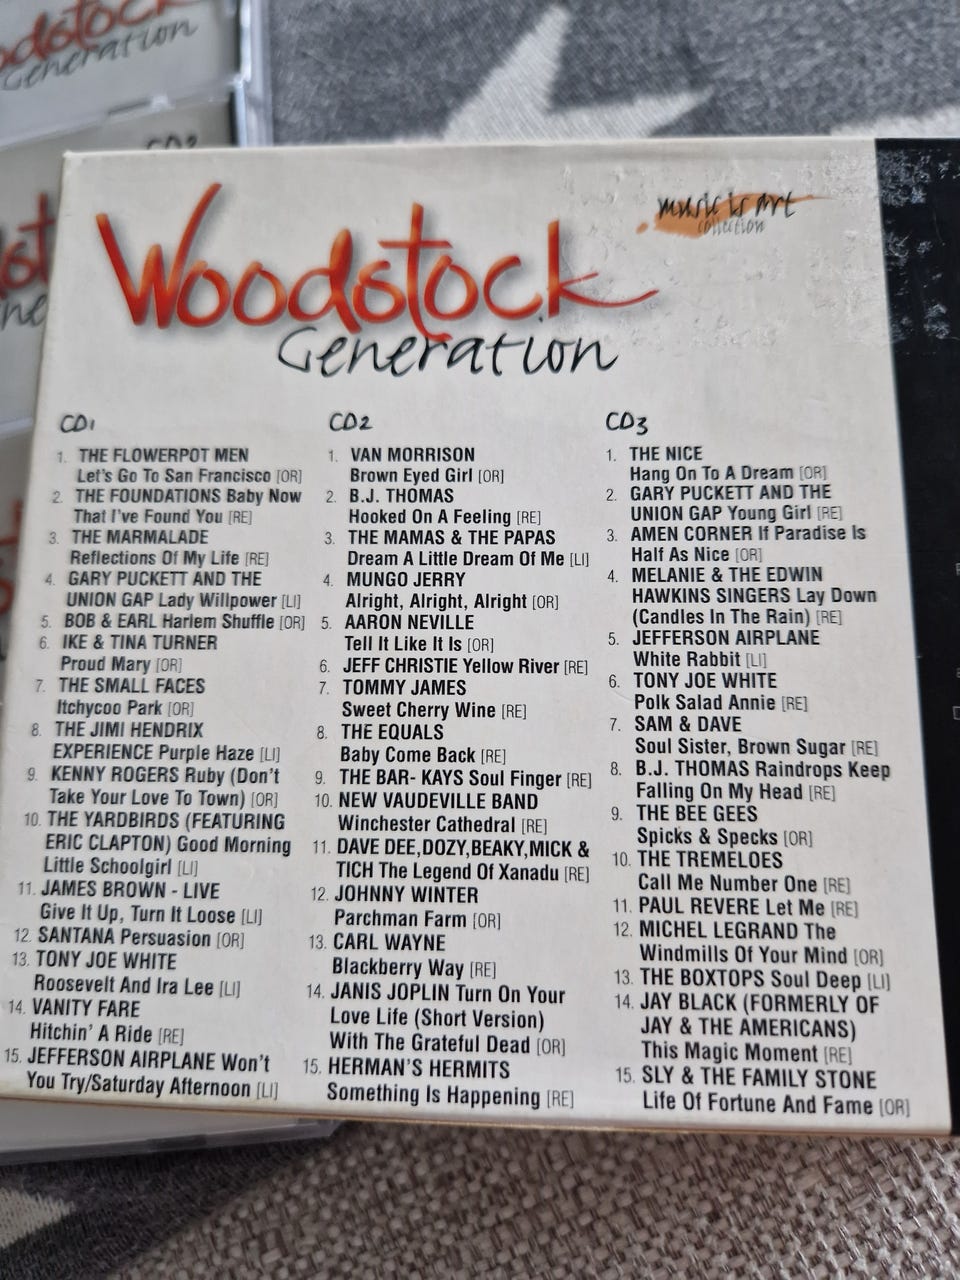 odstock
Generation
CD2
Woodstock
Generation
music is art
collection
CD1
1. THE FLOWERPOT MEN
Let's Go To San Francisco [OR]
2. THE FOUNDATIONS Baby Now
That I've Found You [RE]
3. THE MARMALADE
Reflections Of My Life [RE]
4. GARY PUCKETT AND THE
UNION GAP Lady Willpower [LI]
5. BOB & EARL Harlem Shuffle [OR]
6. IKE & TINA TURNER
Proud Mary [OR]
7. THE SMALL FACES
Itchycoo Park [OR]
8. THE JIMI HENDRIX
EXPERIENCE Purple Haze [LI]
9. KENNY ROGERS Ruby (Don't
Take Your Love To Town) [OR]
10. THE YARDBIRDS (FEATURING
ERIC CLAPTON) Good Morning
Little Schoolgirl [LI]
11. JAMES BROWN - LIVE
Give It Up, Turn It Loose [LI]
12. SANTANA Persuasion [OR]
13. TONY JOE WHITE
Roosevelt And Ira Lee [LI]
14. VANITY FARE
Hitchin' A Ride [RE]
15. JEFFERSON AIRPLANE Won't
You Try/Saturday Afternoon [LI]
CD2
1. VAN MORRISON
Brown Eyed Girl [OR]
2. B.J. THOMAS
Hooked On A Feeling [RE]
3. THE MAMAS & THE PAPAS
Dream A Little Dream Of Me [LI]
4. MUNGO JERRY
Alright, Alright, Alright [OR]
5. AARON NEVILLE
Tell It Like It Is [OR]
6. JEFF CHRISTIE Yellow River [RE]
7. TOMMY JAMES
Sweet Cherry Wine [RE]
8. THE EQUALS
Baby Come Back [RE]
9. THE BAR- KAYS Soul Finger [RE]
10. NEW VAUDEVILLE BAND
Winchester Cathedral [RE]
11. DAVE DEE,DOZY,BEAKY,MICK &
TICH The Legend Of Xanadu [RE]
12. JOHNNY WINTER
Parchman Farm [OR]
13. CARL WAYNE
Blackberry Way [RE]
14. JANIS JOPLIN Turn On Your
Love Life (Short Version)
With The Grateful Dead [OR]
15. HERMAN'S HERMITS
Something Is Happening [RE]
CD3
1. THE NICE
Hang On To A Dream [OR]
2. GARY PUCKETT AND THE
UNION GAP Young Girl [RE]
3. AMEN CORNER If Paradise Is
Half As Nice [OR]
4. MELANIE & THE EDWIN
HAWKINS SINGERS Lay Down
(Candles In The Rain) [RE]
5. JEFFERSON AIRPLANE
White Rabbit [LI]
6. TONY JOE WHITE
Polk Salad Annie [RE]
7. SAM & DAVE
Soul Sister, Brown Sugar [RE]
8. B.J. THOMAS Raindrops Keep
Falling On My Head [RE]
9. THE BEE GEES
Spicks & Specks [OR]
10. THE TREMELOES
Call Me Number One [RE]
11. PAUL REVERE Let Me [RE]
12. MICHEL LEGRAND The
Windmills Of Your Mind [OR]
13. THE BOXTOPS Soul Deep [LI]
14. JAY BLACK (FORMERLY OF
JAY & THE AMERICANS)
This Magic Moment [RE]
15. SLY & THE FAMILY STONE
Life Of Fortune And Fame [OR]